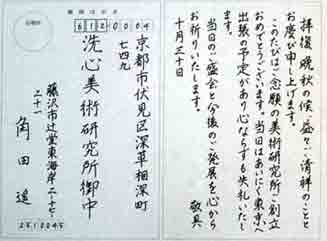 郵便はがき
6120004
京都市伏見区深草相深町
七四九
洗心美術研究所御中
藤沢市辻堂東海岸二ー十七ー
二十一
角田遥
2510045
拝復 晩秋の候、益々ご清祥のことと
お慶び申し上げます。
このたびはご念願の美術研究所ご創立
おめでとうございます。当日はあいにく東京へ
出張の予定があり心ならずも失礼いたし
ます。
当日のご盛会と今後のご発展を心から
お祈りいたします。
敬具
十月三十日